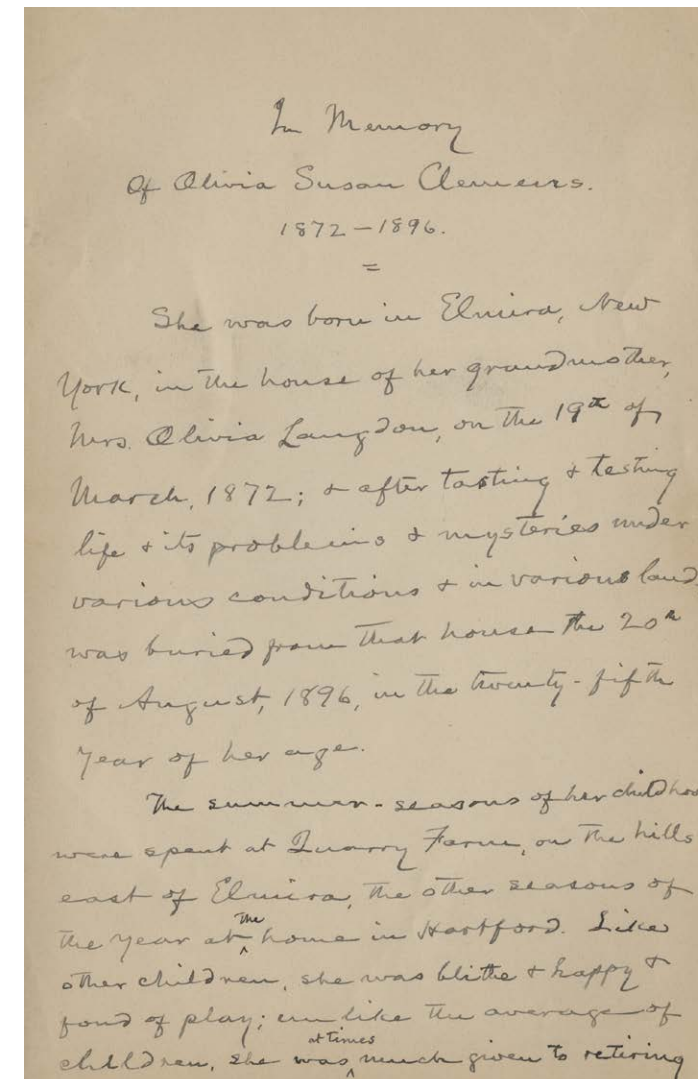 In Memory
Of Olivia Susan Clemens.
1872 — 1896.
=
She was born in Elmira, New
York, in the house of her grandmother,
Mrs. Olivia Langdon, on the 19th of
March, 1872; & after tasting & testing
life & its problems & mysteries under
various conditions & in various land
was buried from that house the 20th
of August, 1896, in the twenty-fifth
year of her age.
The summer-seasons of her childhoo
were spent at Quarry Farm, on the hills
east of Elmira, the other seasons of
the year at ^the home in Hartford. Like
other children, she was blithe & happy &
fond of play; unlike the average of
children, she was ^at times much given to retiring